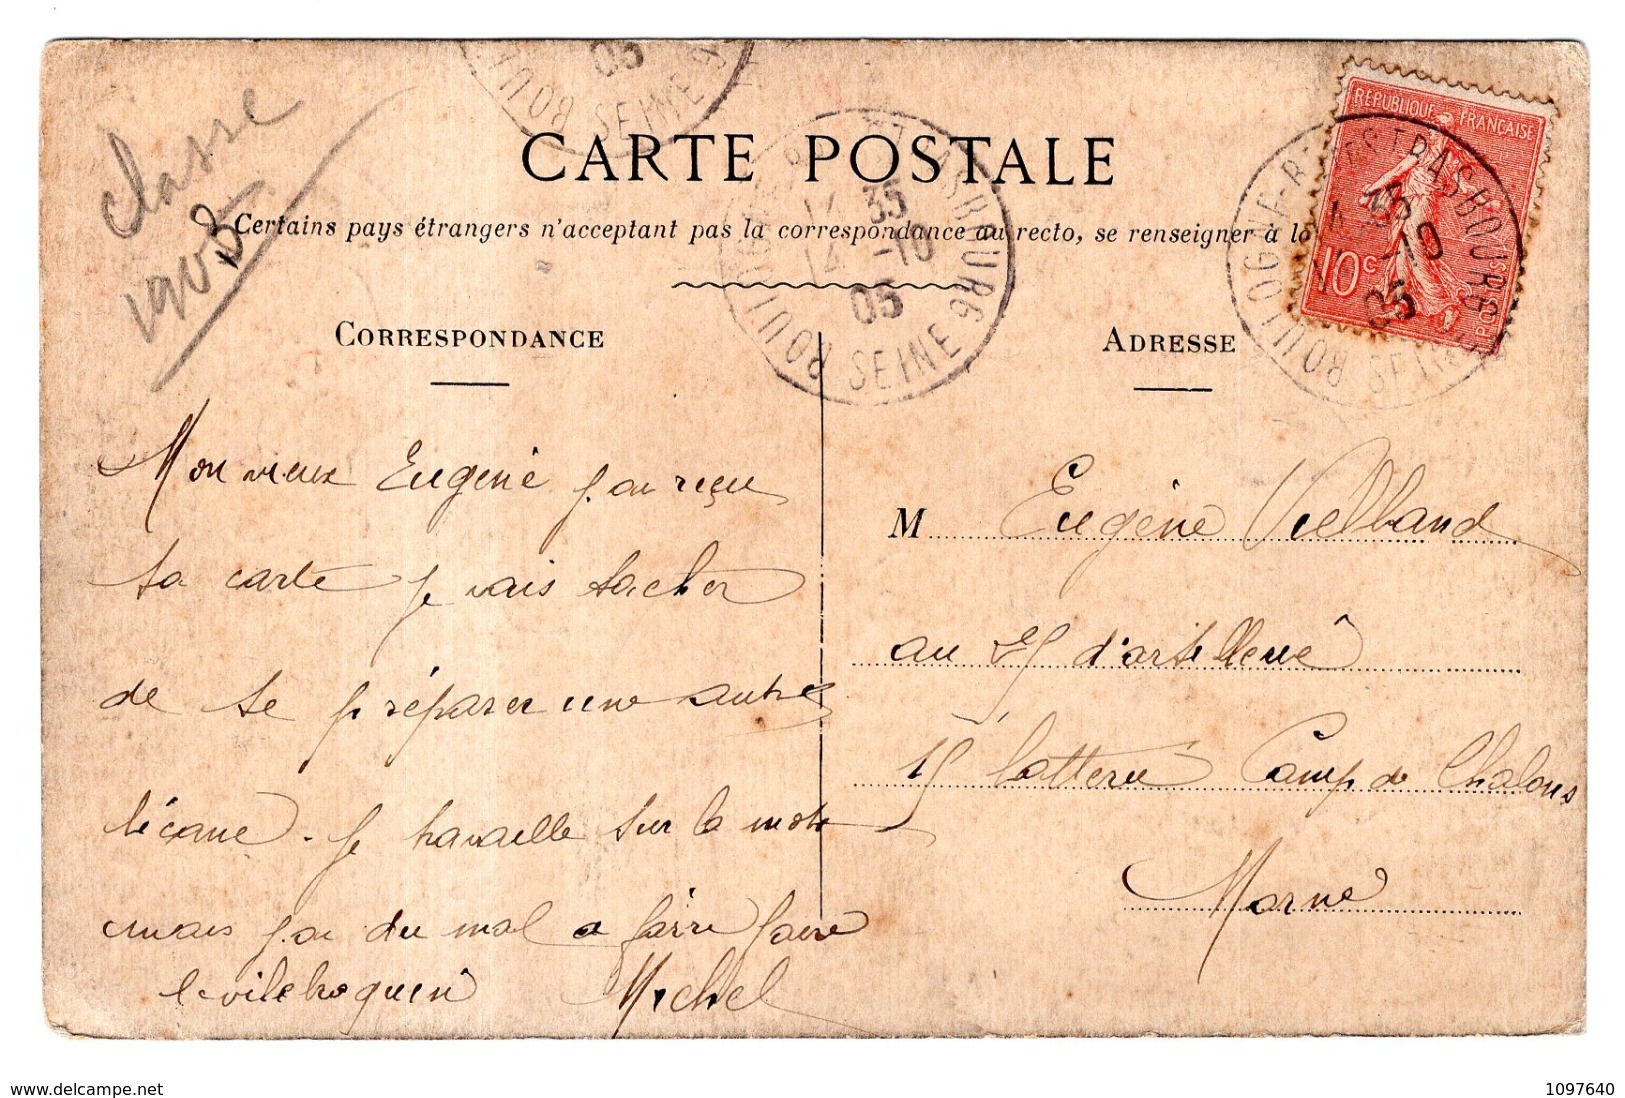 classe
1905
CARTE POSTALE
Certains pays étrangers n'acceptant pas la correspondance au recto, se renseigner à la
CORRESPONDANCE
ADRESSE
RÉPUBLIQUE FRANÇAISE
10c
14 35
14 -10
05
BOULOGNE SEINE
Mon vieux Eugène j'ai reçu
ta carte je vais tacher
de te préparer une autre
bécane. Je travaille sur la moto
mais j'ai du mal a faire
le vilebrequin Michel
M Eugène
au 25 d'artillerie
15 batterie Camp de Chalons
Marne
www.delcampe.net
1097640